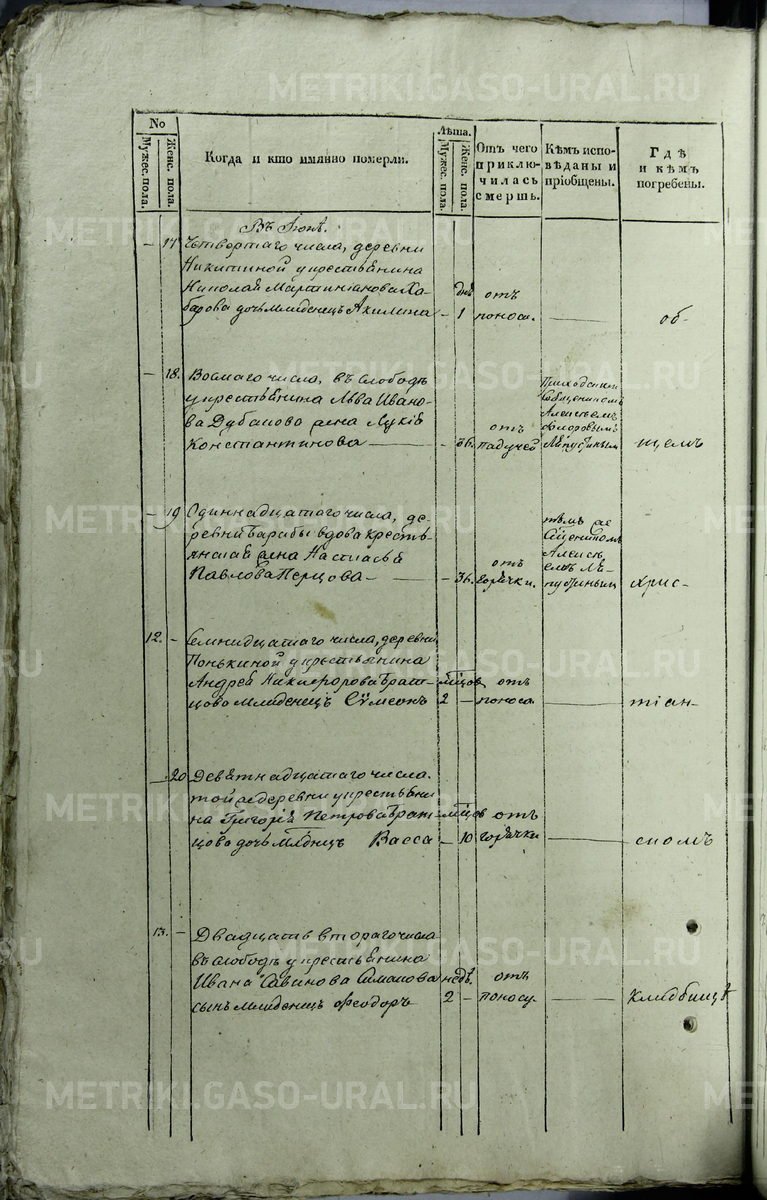 METRIKI.GASO-URAL.RU
No
Мужес. пола.
Женс. пола.
Когда и кто имянно померли.
Лѣта.
Мужес. пола.
Женс. пола.
Отъ чего
приклю-
чилась
смерть.
Кѣмъ испо-
вѣданы и
пріобщены.
Гдѣ
и кѣмъ
погребены.
Въ Іюнѣ.
— 17 Четвертаго числа, деревни
Никитиной у крестьянина
Николая Мартиніанова Ха-
барова дочь младенецъ Акилина
днь
— 1
отъ
поноса.
об-
— 18. Восмаго числа, въ слободѣ
у крестьянина Льва Ивано-
ва жена
Константинова
— 36.
отъ
падучей
Священикомъ
Алексѣемъ
Флоровымъ
щемъ
— 19 Одиннадцатаго числа, де-
ревни вдова кресть-
янская жена Настасья
Павлова Перцова
— 36.
отъ
горячки.
тѣмъ же
Священикомъ
Алексѣ
емъ
хрис-
12. — Семнадцатаго числа, деревни
Понькиной у крестьянина
Андрея Никифорова Брат-
цова младенецъ Сѵмеонъ
мцов
2 —
отъ
поноса
тіан-
— 20 Девятнадцатаго числа.
той же деревни у крестьяни
на Григорія Петрова Брат-
цова дочь млднцъ Васса
мцов
— 10
отъ
горячки
скомъ
13. — Двадцать втораго числа
въ слободѣ у крестьянина
Ивана Савинова Симакова
сынъ младенецъ Феодоръ
недѣ
2 —
отъ
поносу
кладбищѣ
METRIKI.GASO-URAL.RU